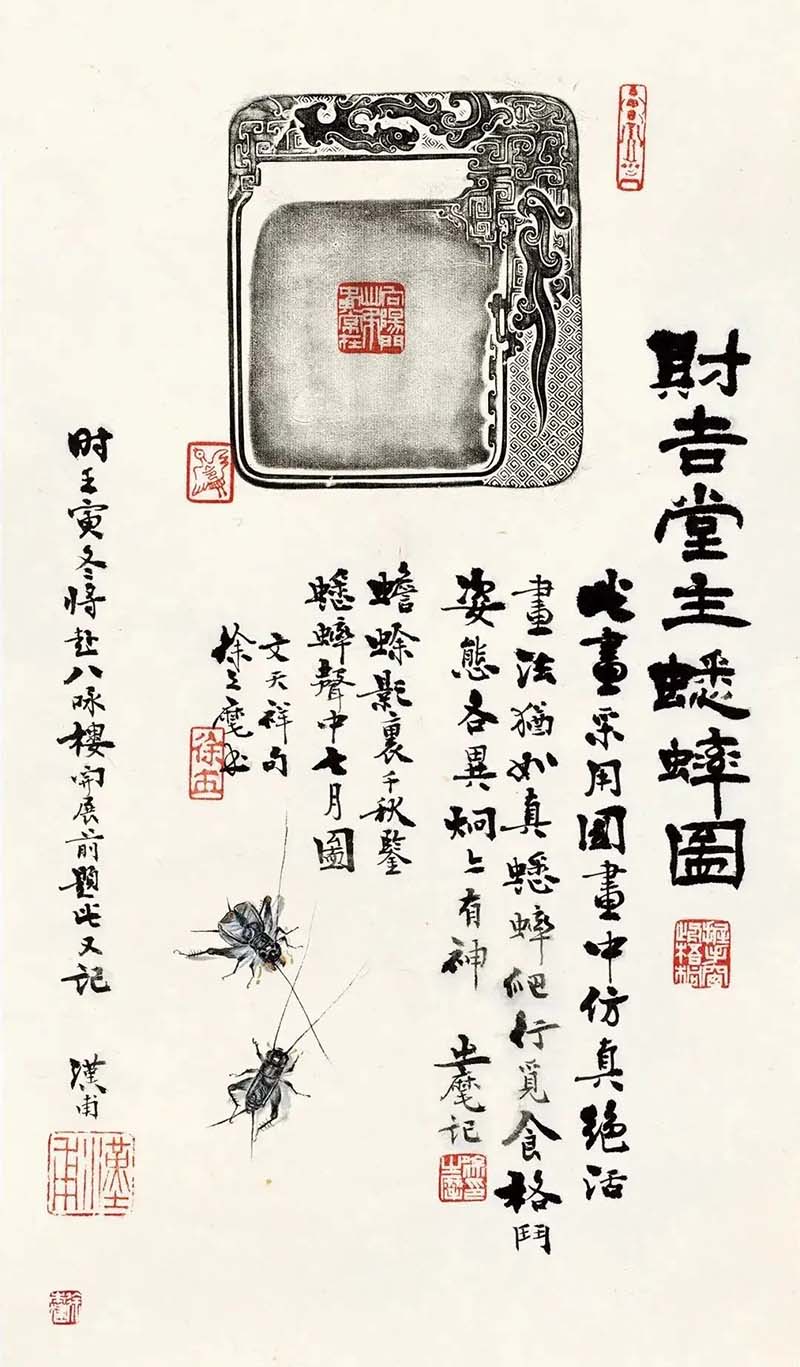 財吉堂主蟋蟀圖
此畫采用國畫中仿真絕活
畫法猶如真蟋蟀爬行覓食格鬥
姿態各異炯々有神
之麾记
蟾蜍影裏千秋鑒
蟋蟀聲中七月圖
文天祥句
徐之麾书
时壬寅冬將赴八咏樓開展前題此又記
漢甫